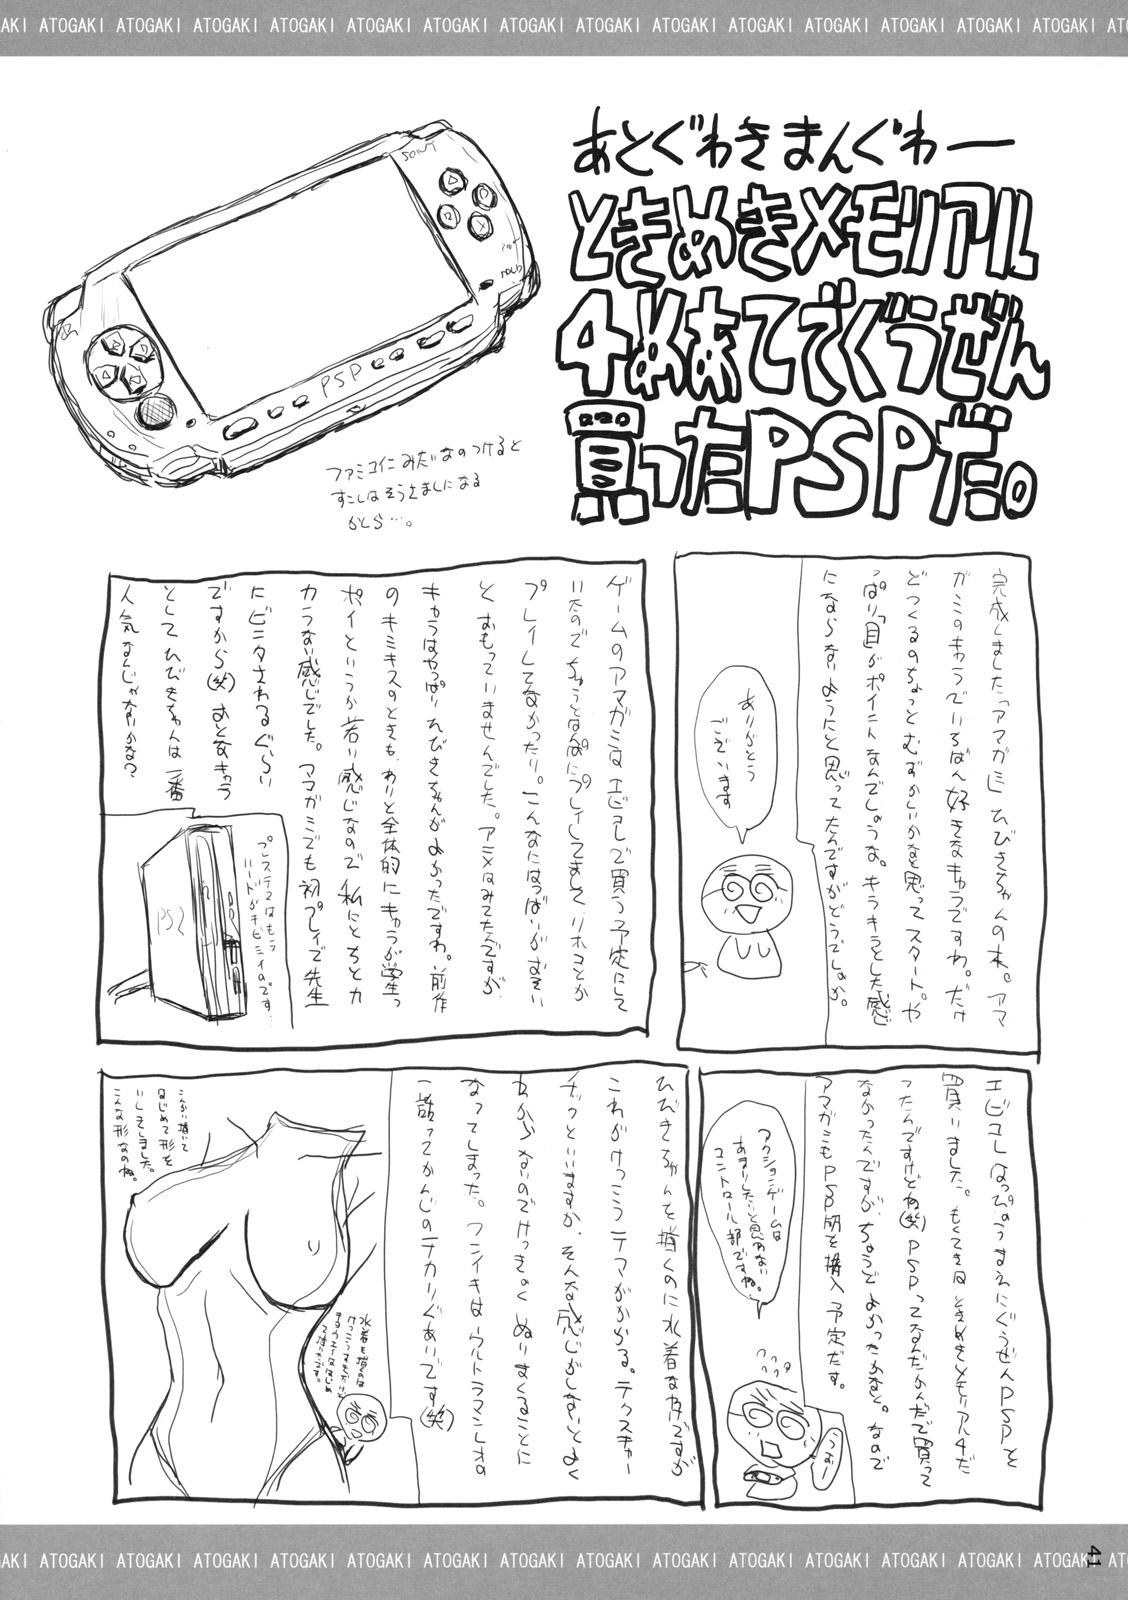 ATOGAKI ATOGAKI ATOGAKI ATOGAKI ATOGAKI ATOGAKI ATOGAKI ATOGAKI ATOGAKI ATOGAKI ATOGAKI ATOGAKI ATOGAKI ATOGAKI
あとぐわきまんぐわー
ときめきメモリアル
4めあてでぐうぜん
買ったPSPだ。
SONY
HOLD
PSP
ファミコンみたいなのつけると
すこしは
なる
かしら…。
完成しました「アマガミ」ひびきちゃんの本。アマ
ガミのキャラでいちばん好きなキャラですわ。だけ
どつくるのちょっとむずかしいかなと思ってスタート。や
っぱり目がポイントなんでしょうな。キラキラとした感じ
にならないようにと思ってたんですがどうでしょか。
ありがとう
ございます
ゲームのアマガミはエビコレで買う予定にして
いたのでちゅうとはんぱにプレイしてまして、リホコとか
プレイしてなかったり。こんなにはつばいがおそい
とおもっていませんでした。アニメはみてたんですが、
キャラはやっぱりひびきちゃんがよかったですわ。前作
のキミキスのときも、わりと全体的にキャラが学生っ
ポイというか若い感じなので私にとちとカ
カラない感じでした。アマガミでも初プレイで先生
にビンタされるぐらい
ですから(笑)おとなキャラ
としてひびきちゃんは一番
人気なんじゃないかな?
プレステ2はもう
ハードがキビシイのです…
PS2
エビコレはっぴょうのまえにぐうぜんPSPを
買いました。もくてきはときめきメモリアル4だ
ったんですけどね(笑)PSPってなんだかんだで買って
なかったんですが、ちょうどよかったかなと。なので
アマガミもPSP用を購入予定だす。
アクションゲームは
あまりしたいと思わない
コントロール部ですね。
ひびきちゃんを描くのに水着なわけですが
これがけっこうテマがかかる。テクスチャー
チックといいますか、そんな感じがしないとよく
わからないのでけっきょくぬりまくることに
なってしまった。フンイキはウルトラマンレオの
1話ってかんじのテカリぐあいです(笑)
こんかい描いて
はじめて形を
しりました。
こんな形なのね。
水着を描くのは
ATOGAKI ATOGAKI ATOGAKI ATOGAKI ATOGAKI ATOGAKI ATOGAKI ATOGAKI ATOGAKI ATOGAKI ATOGAKI ATOGAKI ATOGAKI ATOGAKI
41